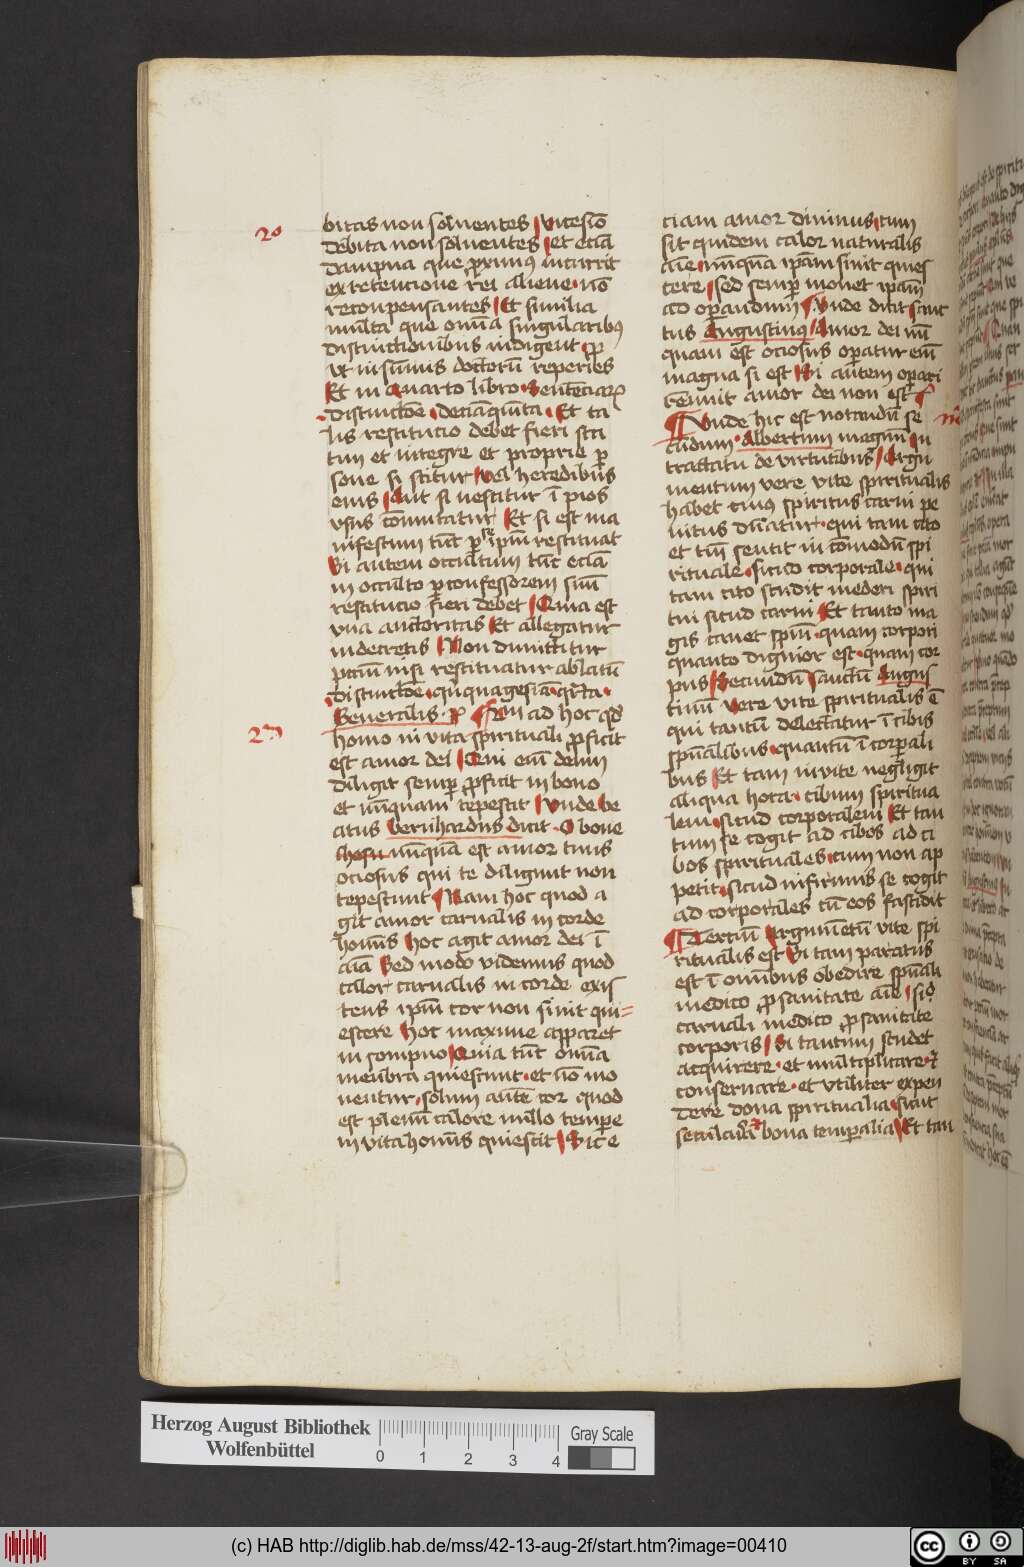 20
bitas non soluentes Vicesīo
debita non soluentes et eciā
dampna que proximus incurrit
ex retencione rei aliene nō
recompensantes Et similia
multa que omīa singularibus
distinctionibus indigent pꝛ
vt in sūmis doctorū reperies
Et in Quarto libro Sentēciaꝝ
distinctōe deciāquīta Et ta
lis restitucio debet fieri sta
tim et integre et proprie ꝑ
sone si scitur vel heredibus
eius Aut si nescitur ī pios
vsus cōmutatur Et si est ma
nifestum tūc per se ipm̄ restituat
Si autem occultum tūc eciā
in occulto ꝑ confessorem suū
restitucio fieri debet Quia est
vna auctoritas Et allegatur
in decretis Non dimittitur
pctm̄ nisi restituatur ablatū
distinctōe qīquagesīa qīta
Generalis
ad hoc qd̄
homo in vita spirituali proficit
est amor dei Qui enī deum
diligit semꝑ proficit in bono
et nūquam tepescit Vnde be
atus bernhardus dicit O bone
Ihesu nūquā est amor tuus
ociosus qui te diligunt non
tepescunt Nam hoc quod a
git amor carnalis in corde
homīs hoc agit amor dei ī
aīa Sed modo videmus quod
calor carnalis in corde exis
tens ipm̄ cor non sinit qui=
escere Hoc maxime apparet
in sompno Quia tūc omīa
membra quiescunt et nō mo
uentur solum autē cor quod
est plenū calore nullo tempore
in vita homīs quiescit Sic e
ciam amor diuinus cum
sit quidem calor naturalis
aīe nūquā ipam sinit quies
cere sed semꝑ mouet ipam
ad operandum Vnde dicit sanc
tus Augustinus Amor dei nū
quam est ociosus operatur enī
magna si est Si autem operari
rennuit amor dei non est
Vnde hic est notandū se
cūdum Albertum magnū in
tractatu de virtutibus Argu
mentum vere vite spiritualis
habet cuius spiritus carni pe
nitus dn̄atur qui tam cito
et cū sentit in cōmodū spi
rituale sicud corporale qui
tam cito studit mederi spiri
tui sicud carni Et tanto ma
gis cauet spm̄ quam corpori
quanto dignior est quam cor
pus Secundū sanctū Augus
tinū Vere vite spiritualis ē
qui tantū delectatur ī cibis
spūalibus quantū ī corporali
bus Et tam inuite negligit
aliqua hora cibum spiritua
lem sicud corporalem Et tan
tum se cogit ad cibos ad ci
bos spirituales cum non ap
petit sicud infirmus se cogit
ad corporales cū eos fastidit
Tercium Argumētū vite spi
ritualis est Si tam paratus
est ī omībus obedire spūali
medico pro sanitate aīe sic
carnali medico pro sanitate
corporis Si tantum studet
acquirere et multiplicare et
conseruare et vtiliter expen
dere dona spiritualia sicut
secularia bona temporalia Et tan
Herzog August Bibliothek
Wolfenbüttel
0 1 2 3 4
Gray Scale
(c) HAB http://diglib.hab.de/mss/42-13-aug-2f/start.htm?image=00410
cc BY SA